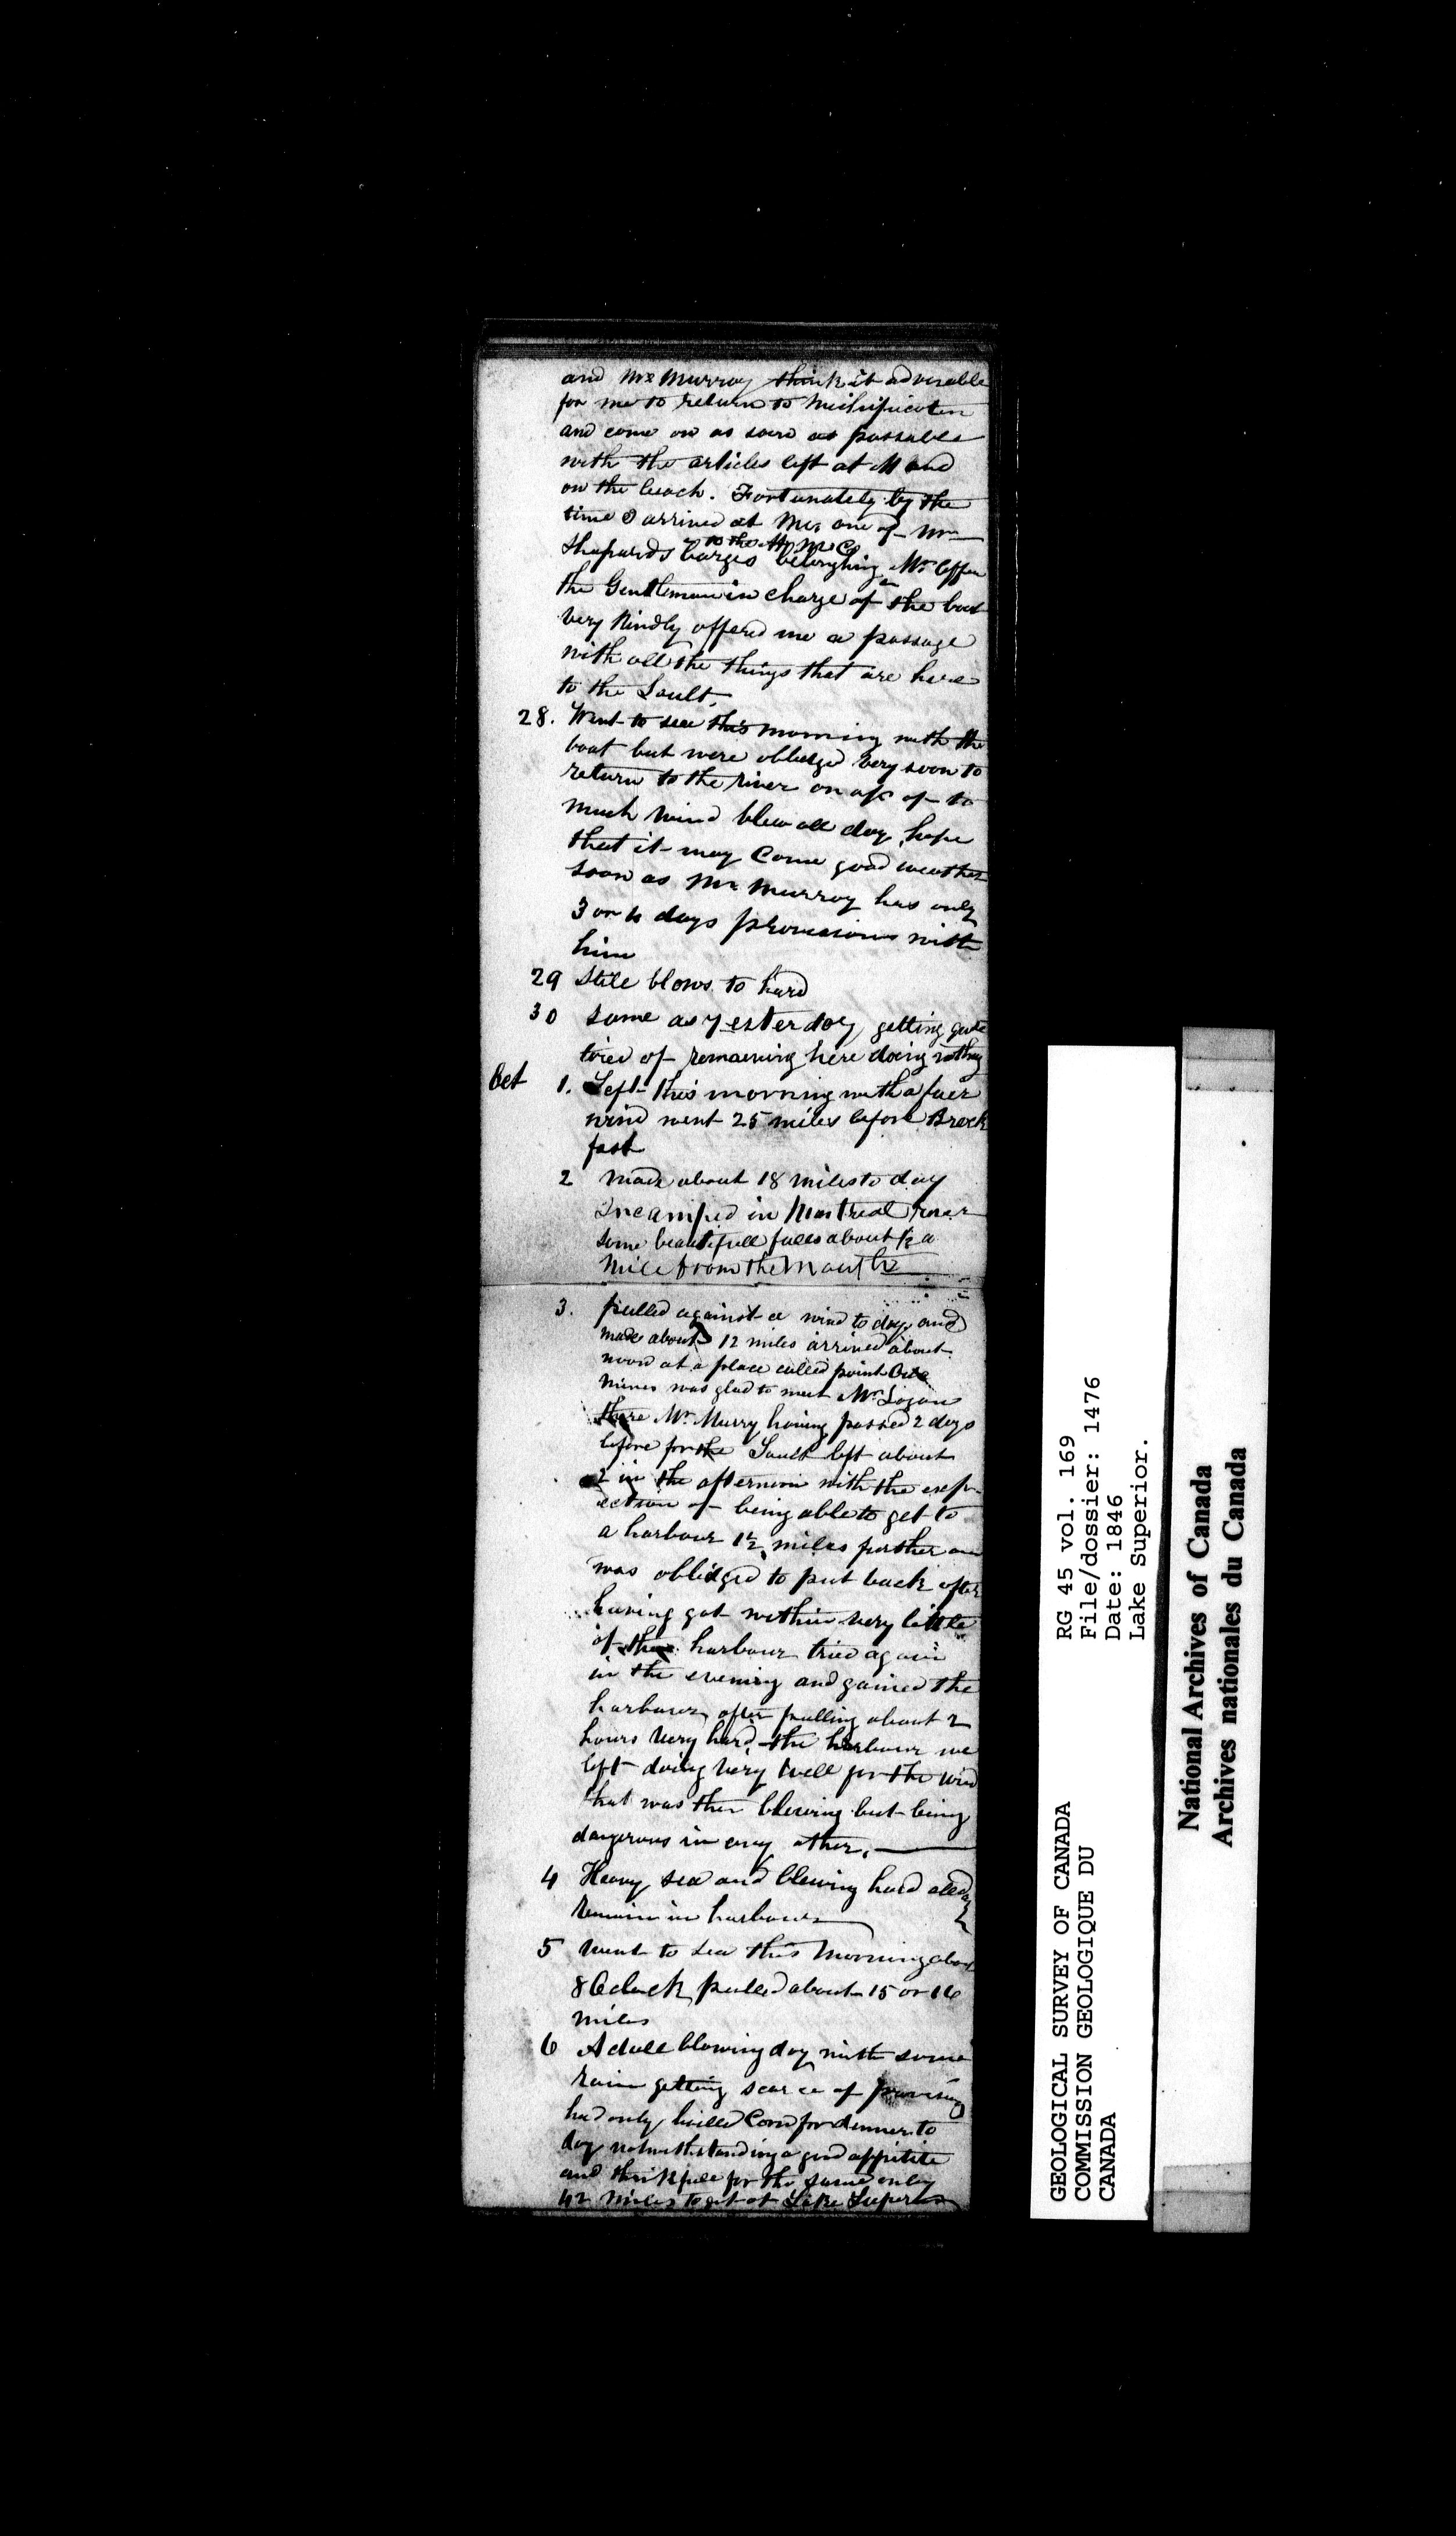 and Mr Murray think it advisable
for me to return to Michipicoten
and come on as soon as possable
with the articles left at M and
on the beach. Fortunately by the
time I arrived at Mic one of Mr
to the
Shapards barges belonging Mr
the Gentleman in charge of the boat
very kindly offered me a passage
with all the things that are here
to the Sault,
28. Went to sea this morning with the
boat but were obbidged very soon to
return to the river on a/c of to
much wind blew all day, hope
that it may Come good weather
soon as Mr Murray has only
3 or 4 days provisions with
him
29 Still blows to hard
30 Same as yesterday getting quite
tired of remaining here doing nothing
Oct 1. Left this morning with a fair
wind went 25 miles before Breck
fast
2 made about 18 miles to day
Incamped in Montreal river
some beautifull falls about ½ a
Mile from the Mouth
3. pulled against a wind to day and
made about 12 miles arrived about
noon at a place called point Aux
Mines was glad to meet Mr Logan
there Mr Murry having passed 2 days
before for the Sault left about
2 in the afternoon with the exp-
ection of being able to get to
a harbour 1½ miles further on
was obbidged to put back after
having got within very little
of the harbour tried again
in the evening and gained the
harbour after pulling about 2
hours very hard, the harbour we
left doing very well for the wind
that was then blowing but being
dangerous in any other,
4 Heavy sea and blowing hard all day
remain in harbour
5 went to sea this Morning about
8 Oclock pulled about 15 or 16
miles
6 A dull blowing day with some
rain getting scarce of
had only boilled Corn for dinner to
day notwithstanding a good appitite
and thinkfull for the same only
42 miles to get at Lake Superior
GEOLOGICAL SURVEY OF CANADA
COMMISSION GEOLOGIQUE DU
CANADA
RG 45 vol. 169
File/dossier: 1476
Date: 1846
Lake Superior.
National Archives of Canada
Archives nationales du Canada